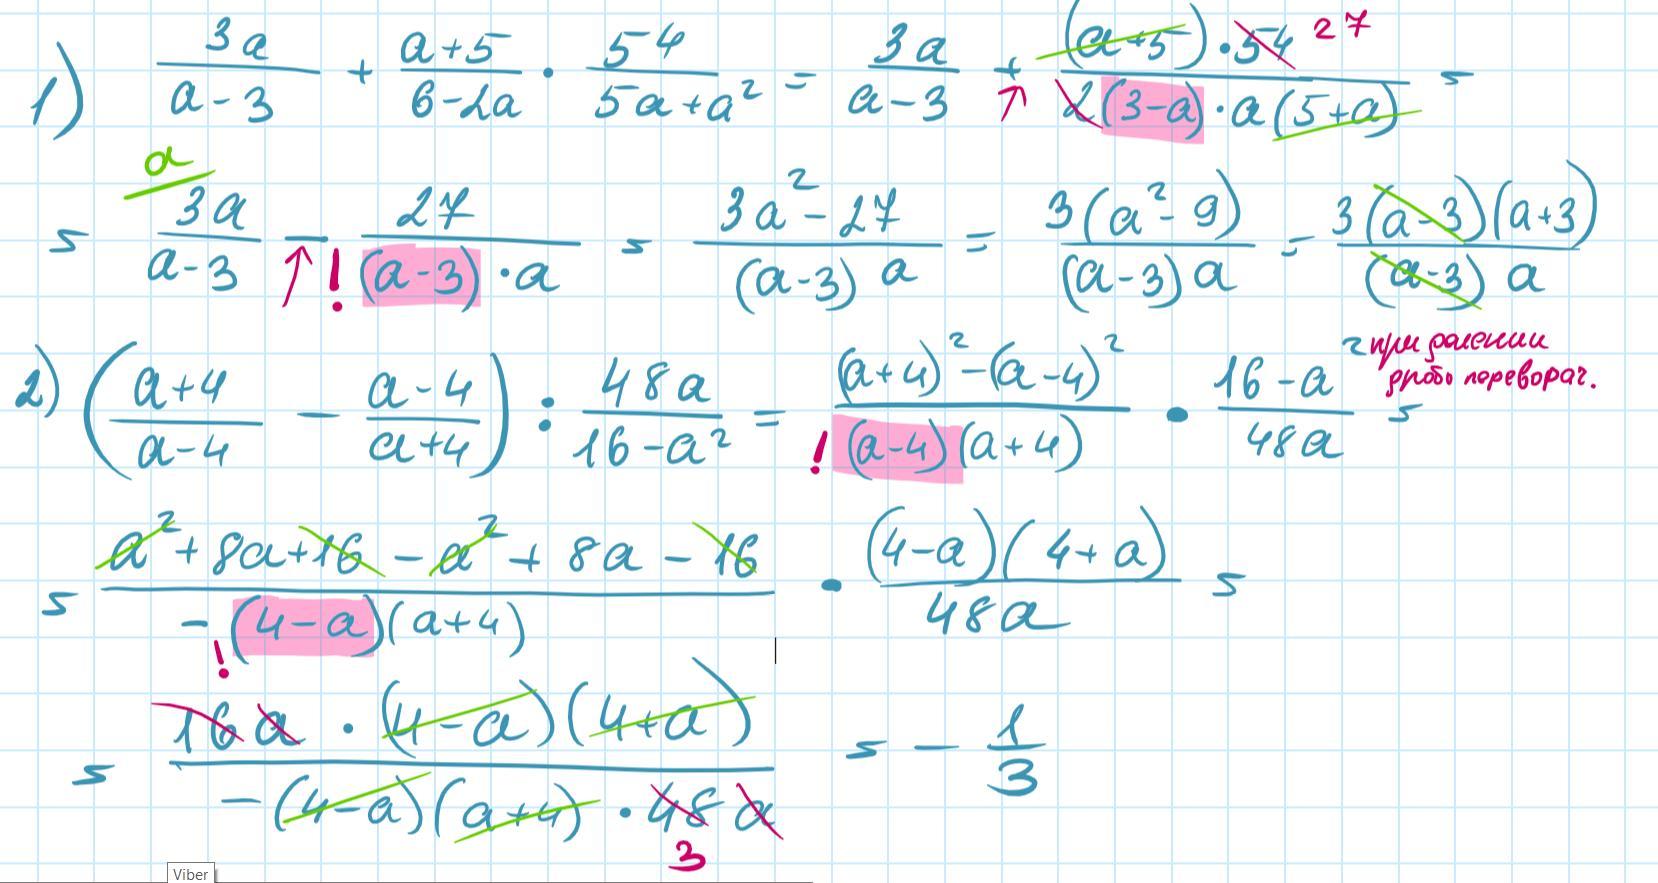 1) 3a/(a-3) + (a+5)/(6-2a) · 54/(5a+a²) = 3a/(a-3) + (a+5)·54 27/(2(3-a)·a(5+a)) =
= a 3a/(a-3) - 27/((a-3)·a) = (3a²-27)/((a-3)a) = 3(a²-9)/((a-3)a) = 3(a-3)(a+3)/((a-3)a)
!
2) ((a+4)/(a-4) - (a-4)/(a+4)) : 48a/(16-a²) = ((a+4)²-(a-4)²)/((a-4)(a+4)) · (16-a²)/48a =
при делении
дробь переворач.
!
= (a²+8a+16-a²+8a-16)/(-(4-a)(a+4)) · (4-a)(4+a)/48a =
!
= 16a·(4-a)(4+a)/(-(4-a)(a+4)·48a) = -1/3
3
Viber